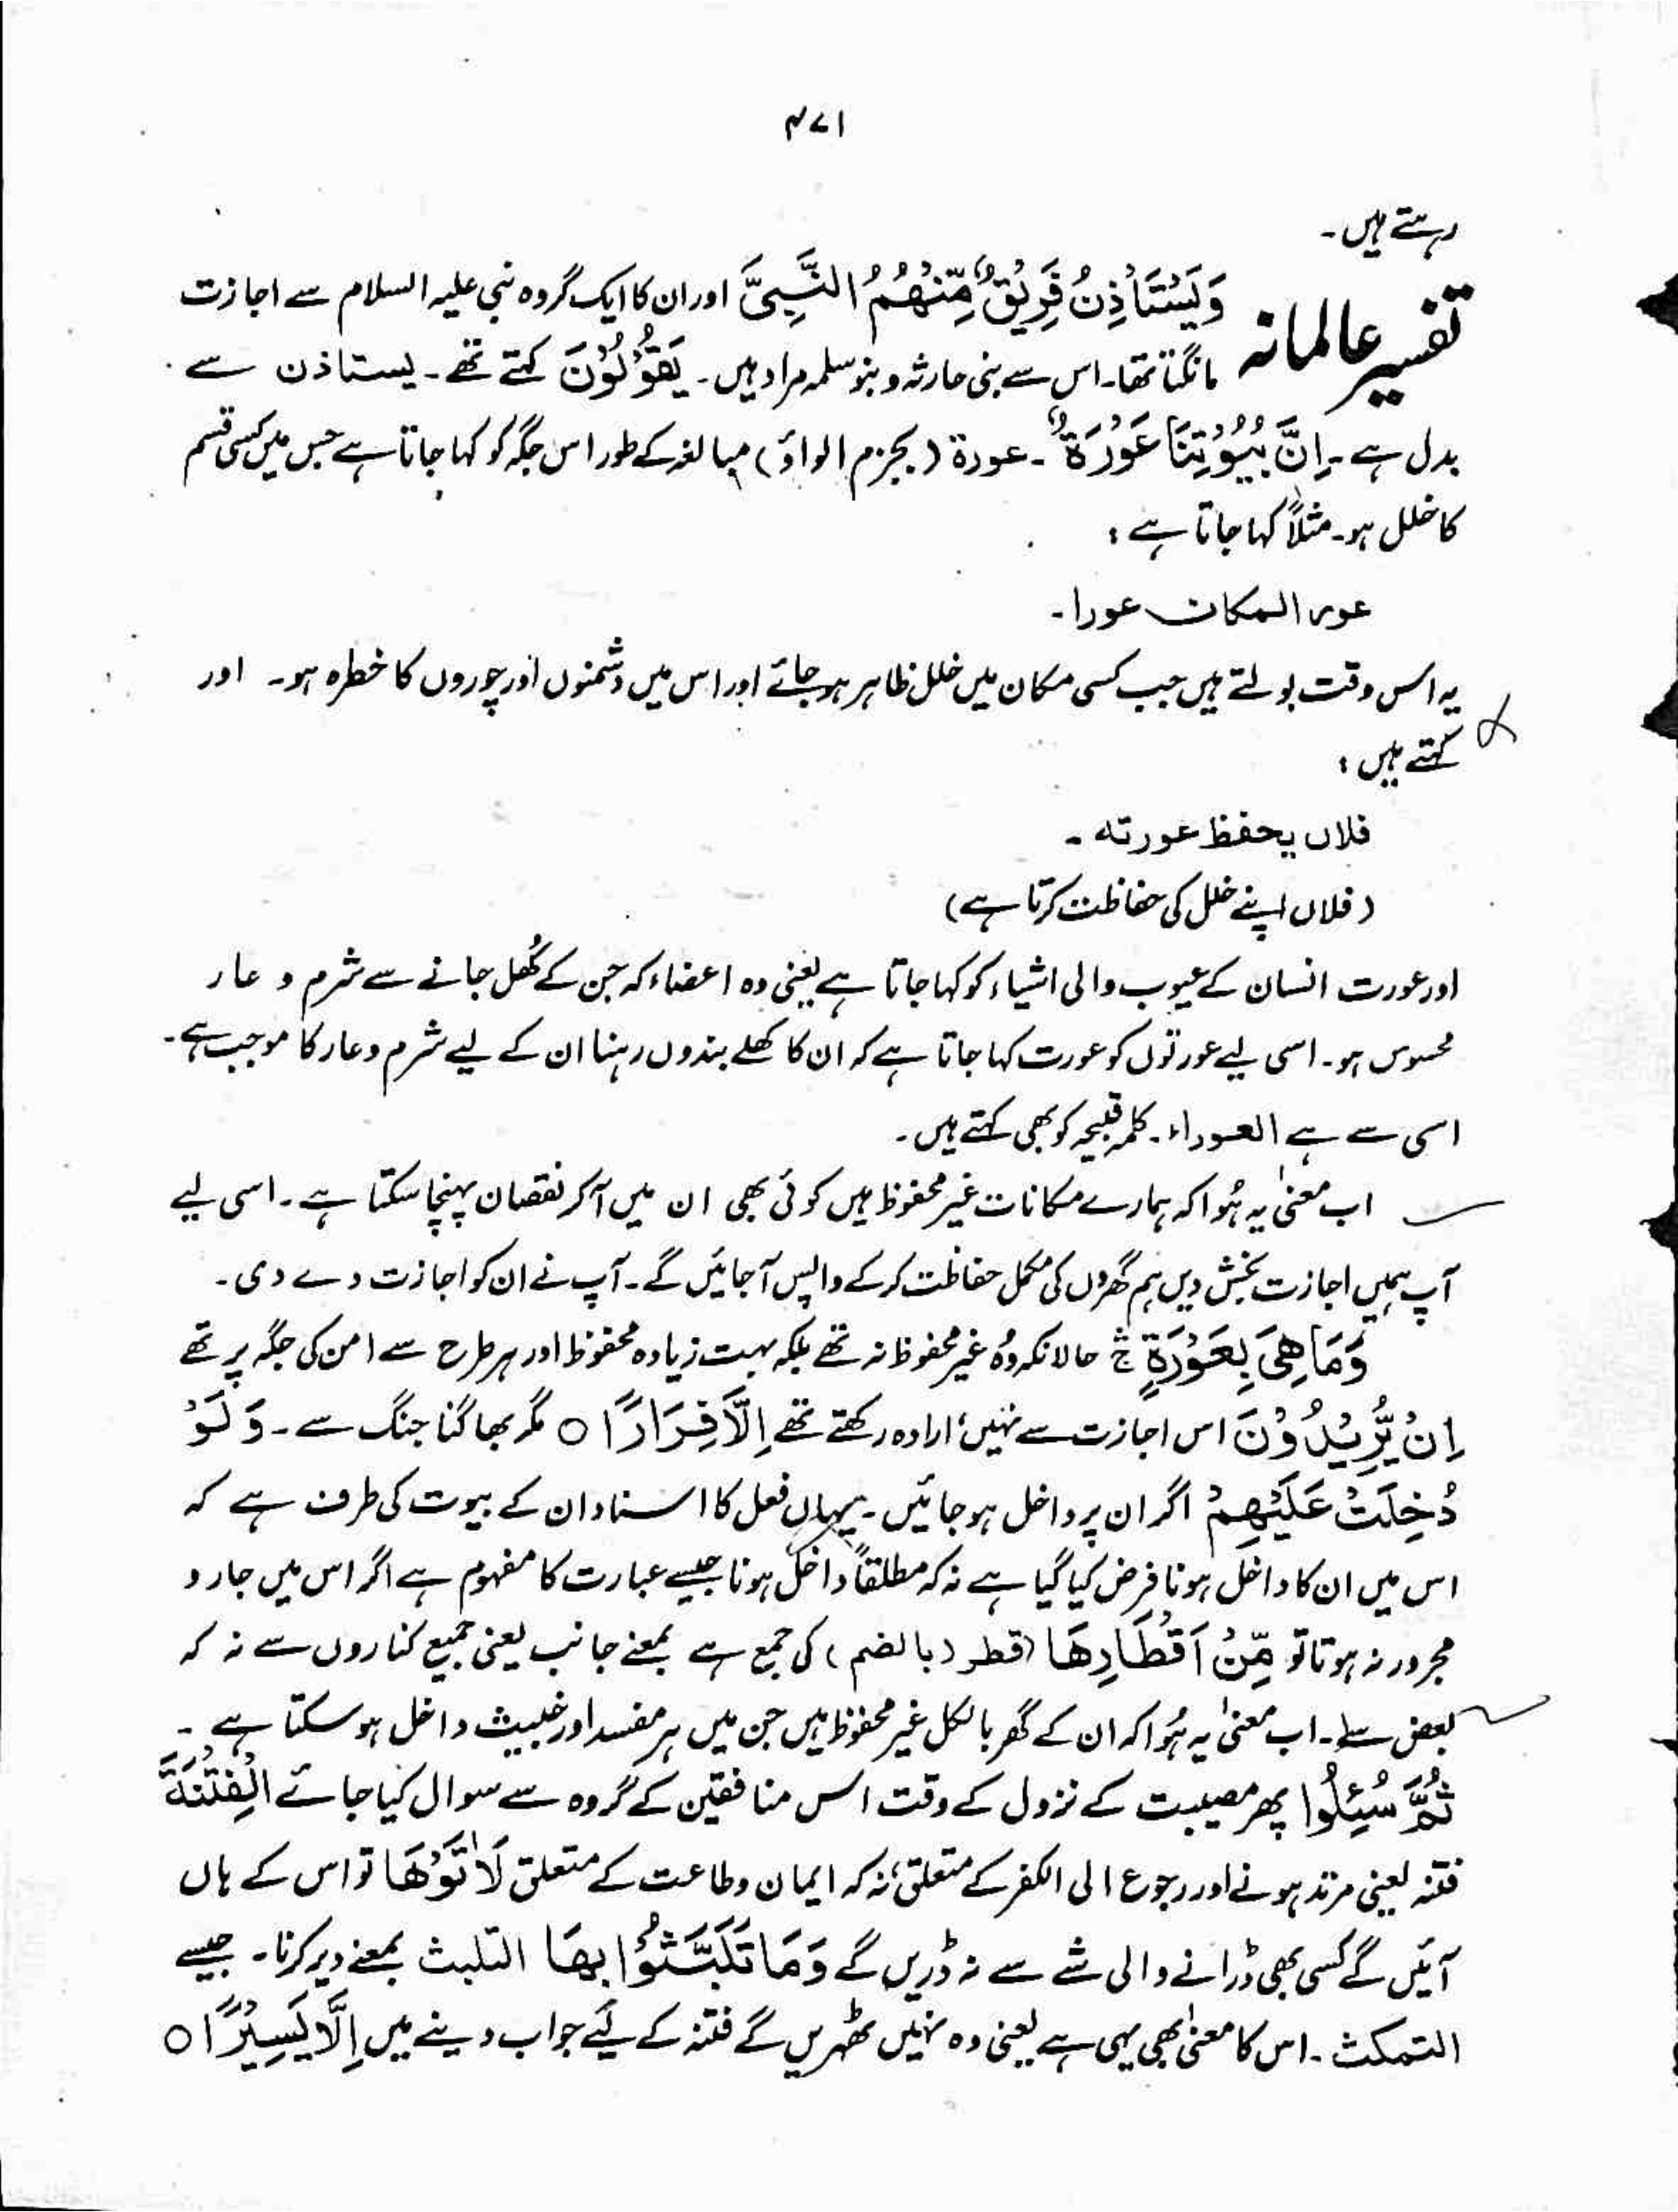 ۴۷۱
رہتے ہیں۔
تفسیر عالمانہ
وَيَسْتَأْذِنُ فَرِيْقٌ مِّنْهُمُ النَّبِيَّ اور ان کا ایک گروہ نبی علیہ السلام سے اجازت
مانگتا تھا۔ اس سے بنی حارثہ و بنو سلمہ مراد ہیں۔ يَقُوْلُوْنَ کہتے تھے۔ یستاذن سے
بدل ہے۔ اِنَّ بُيُوْتَنَا عَوْرَةٌ ۔ عورۃ (بجزم الواؤ) مبالغہ کے طور اس جگہ کو کہا جاتا ہے جس میں کسی قسم
کا خلل ہو۔ مثلاً کہا جاتا ہے :
عور المکان عورا۔
یہ اس وقت بولتے ہیں جب کسی مکان میں خلل ظاہر ہو جائے اور اس میں دشمنوں اور چوروں کا خطرہ ہو۔ اور
کہتے ہیں :
فلاں یحفظ عورتہ ۔
(فلاں اپنے خلل کی حفاظت کرتا ہے)
اور عورت انسان کے عیوب والی اشیاء کو کہا جاتا ہے یعنی وہ اعضاء کہ جن کے کُھل جانے سے شرم و عار
محسوس ہو۔ اسی لیے عورتوں کو عورت کہا جاتا ہے کہ ان کا کھلے بندوں رہنا ان کے لیے شرم و عار کا موجب ہے۔
اسی سے ہے العوراء۔ کلمہ قبیحہ کو بھی کہتے ہیں۔
اب معنیٰ یہ ہُوا کہ ہمارے مکانات غیر محفوظ ہیں کوئی بھی ان میں آ کر نقصان پہنچا سکتا ہے۔ اسی لیے
آپ ہمیں اجازت بخش دیں ہم گھروں کی مکمل حفاظت کر کے واپس آجائیں گے۔ آپ نے ان کو اجازت دے دی۔
وَمَا هِيَ بِعَوْرَةٍ ۛ حالانکہ وُہ غیر محفوظ نہ تھے بلکہ بہت زیادہ محفوظ اور ہر طرح سے امن کی جگہ پر تھے
اِنْ يُّرِيْدُوْنَ اس اجازت سے نہیں ارادہ رکھتے تھے اِلَّا فِرَارًا ○ مگر بھاگنا جنگ سے۔ وَلَوْ
دُخِلَتْ عَلَيْهِمْ اگر ان پر داخل ہو جائیں۔ یہاں فعل کا اسناد ان کے بیوت کی طرف ہے کہ
اس میں ان کا داخل ہونا فرض کیا گیا ہے نہ کہ مطلقاً داخل ہونا جیسے عبارت کا مفہوم ہے اگر اس میں جار و
مجرور نہ ہوتا تو مِّنْ اَقْطَارِهَا (قطر (بالضم) کی جمع ہے بمعنے جانب یعنی جمیع کناروں سے نہ کہ
بعض سے)۔ اب معنیٰ یہ ہُوا کہ ان کے گھر بالکل غیر محفوظ ہیں جن میں ہر مفسد اور خبیث داخل ہو سکتا ہے۔
ثُمَّ سُئِلُوا پھر مصیبت کے نزول کے وقت اس منافقین کے گروہ سے سوال کیا جائے الْفِتْنَةَ
فتنہ یعنی مرتد ہونے اور رجوع الی الکفر کے متعلق نہ کہ ایمان و طاعت کے متعلق لَاٰتَوْهَا تو اس کے ہاں
آئیں گے کسی بھی ڈرانے والی شے سے نہ ڈریں گے وَمَا تَلَبَّثُوْا بِهَا التلبث بمعنے دیر کرنا۔ جیسے
التمکث۔ اس کا معنیٰ بھی یہی ہے یعنی وہ نہیں ٹھہریں گے فتنہ کے لیے جواب دینے میں اِلَّا يَسِيْرًا ○